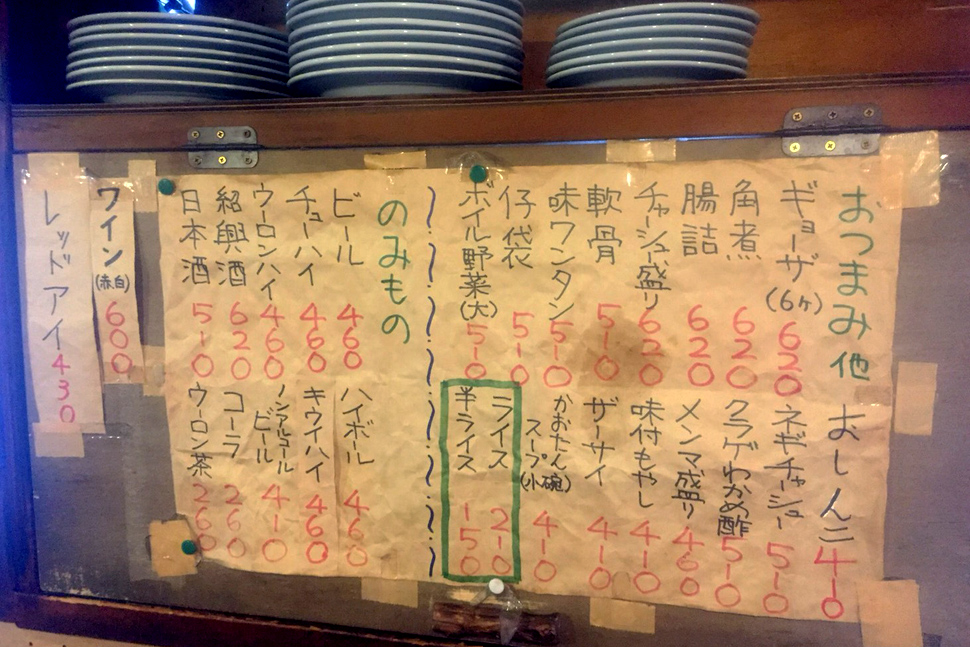 おつまみ他
ギョーザ(6ケ) 620
角煮 620
腸詰 620
チャーシュー盛り 620
軟骨 510
味ワンタン 510
仔袋 510
ボイル野菜(大) 510
おしんこ 410
ネギチャーシュー 510
クラゲわかめ酢 510
メンマ盛り 460
味付もやし 410
ザーサイ 410
かおたんスープ(小碗) 410
ライス 210
半ライス 150
のみもの
ビール 460
チューハイ 460
ウーロンハイ 460
紹興酒 620
日本酒 510
ハイボール 460
キウイハイ 460
ノンアルコールビール 410
コーラ 260
ウーロン茶 260
ワイン(赤白) 600
レッドアイ 430